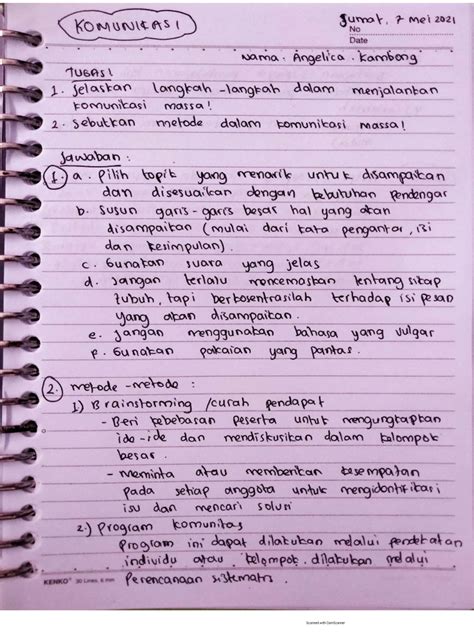 KOMUNIKASI
Jumat, 7 mei 2021
No
Date
Nama : Angelica Kambong
TUGAS!
1. Jelaskan langkah-langkah dalam menjalankan
komunikasi massa!
2. Sebutkan metode dalam komunikasi massa!
Jawaban :
1. a. Pilih topik yang menarik untuk disampaikan
dan disesuaikan dengan kebutuhan pendengar
b. Susun garis-garis besar hal yang akan
disampaikan (mulai dari kata pengantar, isi
dan kesimpulan).
c. Gunakan suara yang jelas
d. Jangan terlalu mencemaskan tentang sikap
tubuh, tapi berkosentrasilah terhadap isi pesan
yang akan disampaikan.
e. Jangan menggunakan bahasa yang vulgar
f. Gunakan pakaian yang pantas.
2. metode-metode :
1) Brainstorming /curah pendapat
- Beri kebebasan peserta untuk mengungkapkan
ide-ide dan mendiskusikan dalam kelompok
besar.
- meminta atau memberikan kesempatan
pada setiap anggota untuk mengidentifikasi
isu dan mencari solusi
2.) Program komunitas
Program ini dapat dilakukan melalui pendekatan
individu atau kelompok. dilakukan melalui
KENKO 30 Lines, 6 mm Perencanaan sistematis.
Scanned with CamScanner